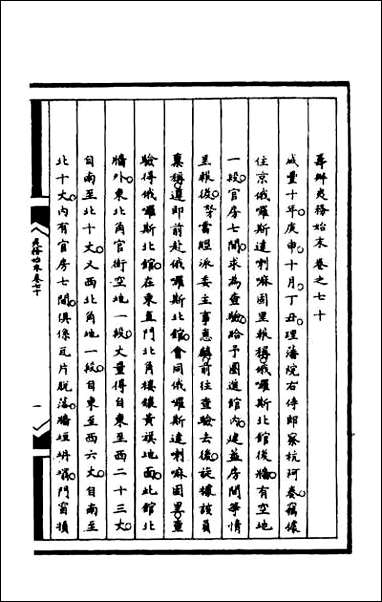 籌辦夷務始末卷之七十
咸豐十年庚申十月丁丑理藩院右侍郎察杭阿奏竊據
住京俄囉斯達喇嘛固里報稱俄囉斯北館後牆有空地
一段官房七間求為查驗給予圈進館內建蓋房間等情
呈報後當照派委主事恩麟前往查驗去後旋據該員
稟稱遵即前赴俄囉斯北館會同俄囉斯達喇嘛固里查
驗得俄囉斯北館在東直門北角樓鑲黃旗地面此館北
牆外東北角官街空地一段丈量得自東至西二十三丈
自南至北十丈又西北角地一段自東至西六丈自南至
北十丈內有官房七間俱係瓦片脫落牆垣坍塌門窗損
夷務始末卷七十
一